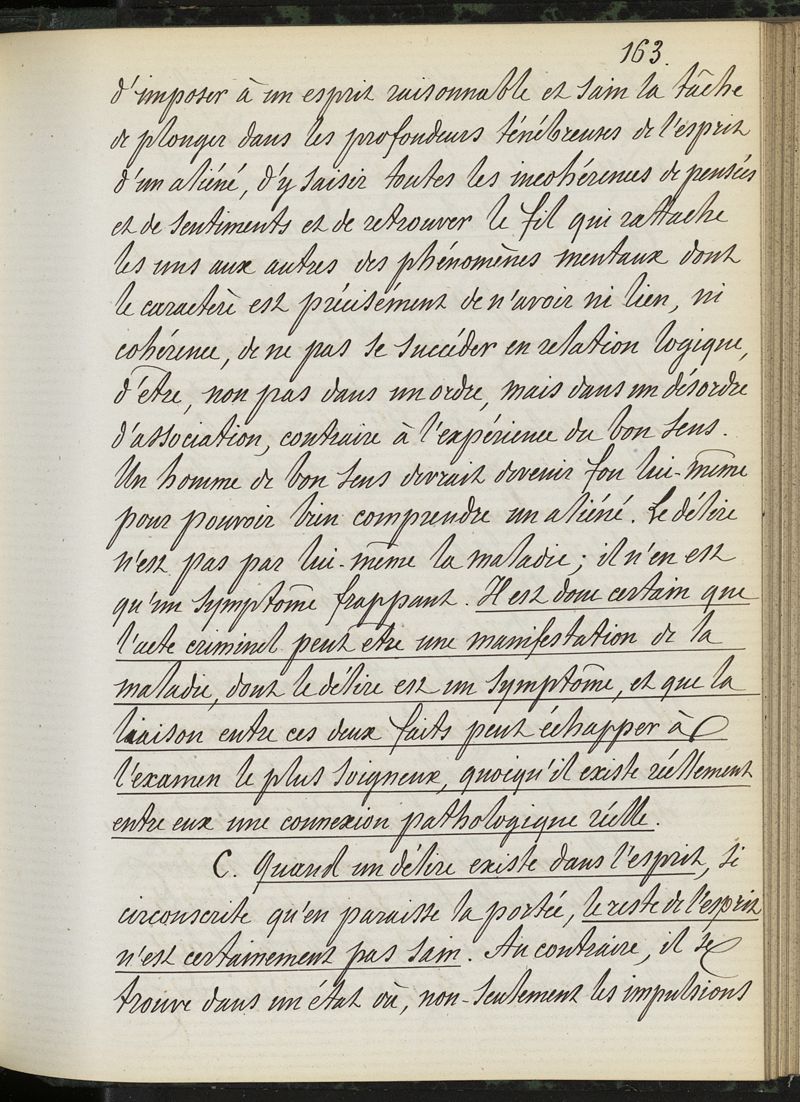 163.
d'imposer à un esprit raisonnable et sain la tâche
de plonger dans les profondeurs ténébreuses de l'esprit
d'un aliéné, d'y saisir toutes les incohérences de pensées
et de sentiments et de retrouver le fil qui rattache
les uns aux autres des phénomènes mentaux dont
le caractère est précisément de n'avoir ni lien, ni
cohérence, de ne pas se succéder en relation logique,
d'être, non pas dans un ordre, mais dans un désordre
d'association, contraire à l'expérience du bon sens.
Un homme de bon sens devrait devenir fou lui-même
pour pouvoir bien comprendre un aliéné. Le délire
n'est pas par lui-même la maladie; il n'en est
qu'un symptôme frappant. Il est donc certain que
l'acte criminel peut être une manifestation de la
maladie, dont le délire est un symptôme, et que la
liaison entre ces deux faits peut échapper à
l'examen le plus soigneux, quoiqu'il existe réellement
entre eux une connexion pathologique réelle.
C. Quand un délire existe dans l'esprit, si
circonscrite qu'en paraisse la portée, le reste de l'esprit
n'est certainement pas sain. Au contraire, il se
trouve dans un état où, non-seulement les impulsions